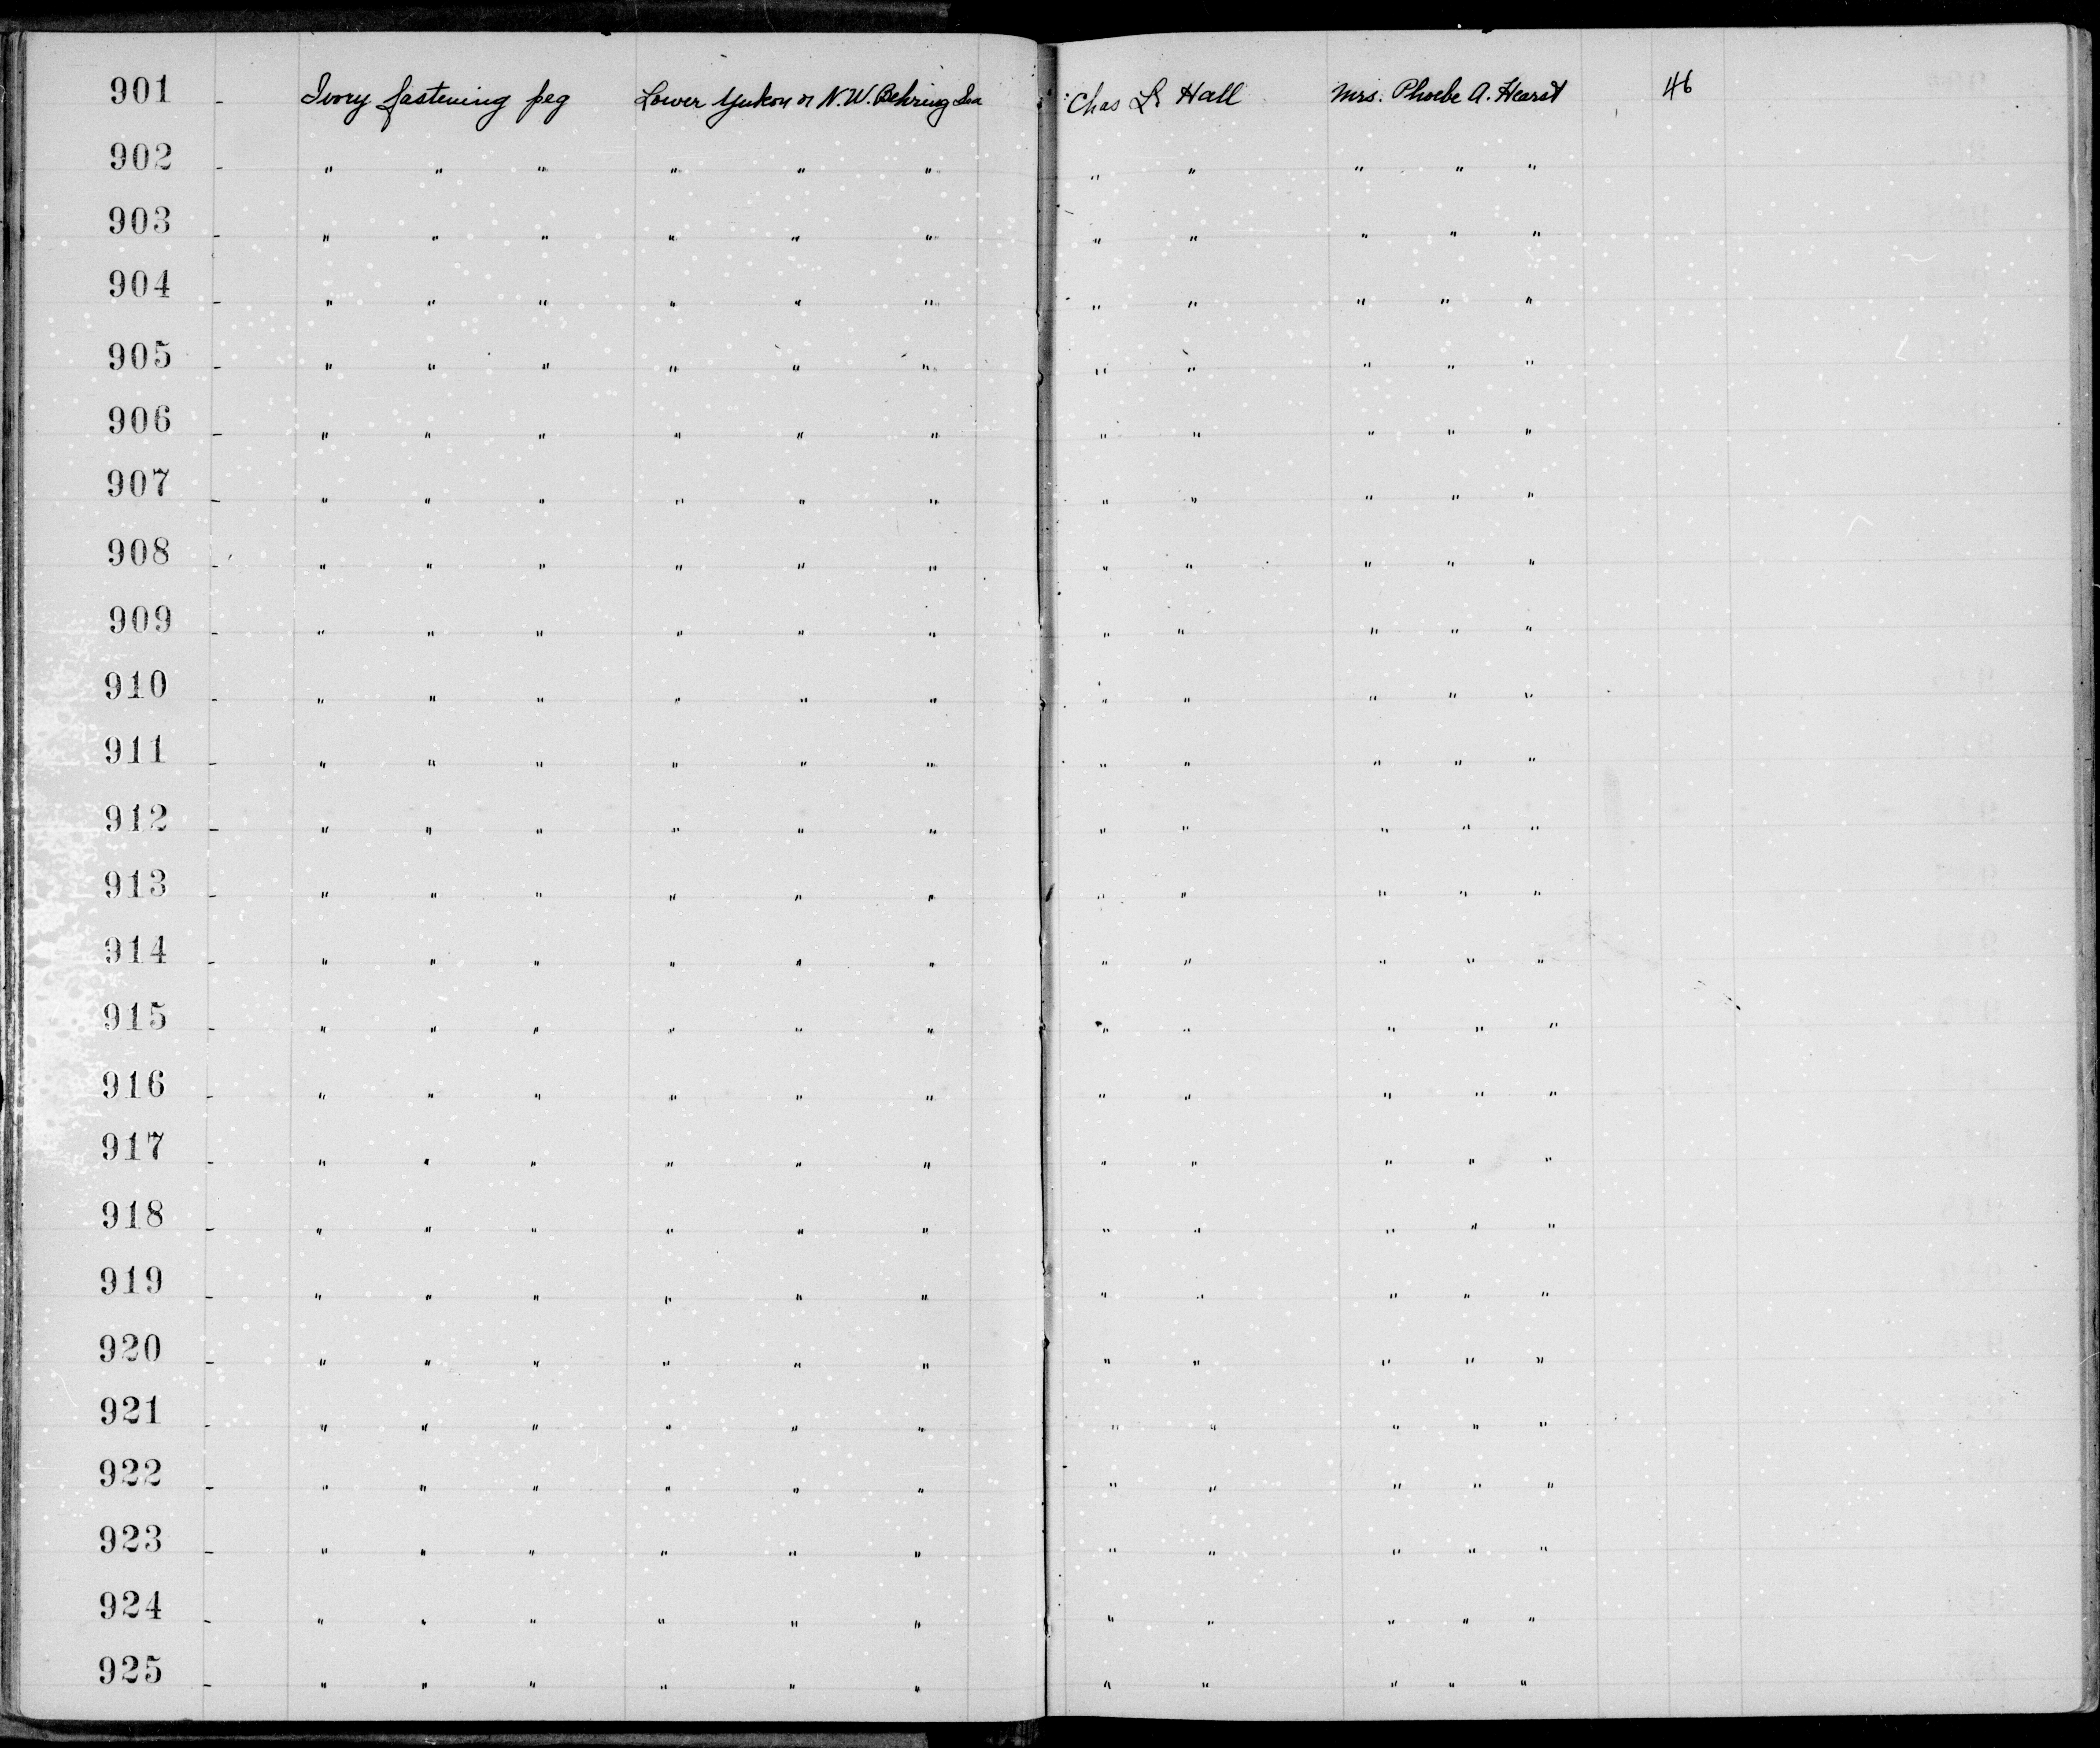 901 - Ivory fastening peg Lower Yukon or N.W. Behring Sea Chas L. Hall Mrs. Phoebe A. Hearst 46
902 - " " " " " " " " " " "
903 - " " " " " " " " " " "
904 - " " " " " " " " " " "
905 - " " " " " " " " " " "
906 - " " " " " " " " " " "
907 - " " " " " " " " " " "
908 - " " " " " " " " " " "
909 - " " " " " " " " " " "
910 - " " " " " " " " " " "
911 - " " " " " " " " " " "
912 - " " " " " " " " " " "
913 - " " " " " " " " " " "
914 - " " " " " " " " " " "
915 - " " " " " " " " " " "
916 - " " " " " " " " " " "
917 - " " " " " " " " " " "
918 - " " " " " " " " " " "
919 - " " " " " " " " " " "
920 - " " " " " " " " " " "
921 - " " " " " " " " " " "
922 - " " " " " " " " " " "
923 - " " " " " " " " " " "
924 - " " " " " " " " " " "
925 - " " " " " " " " " " "